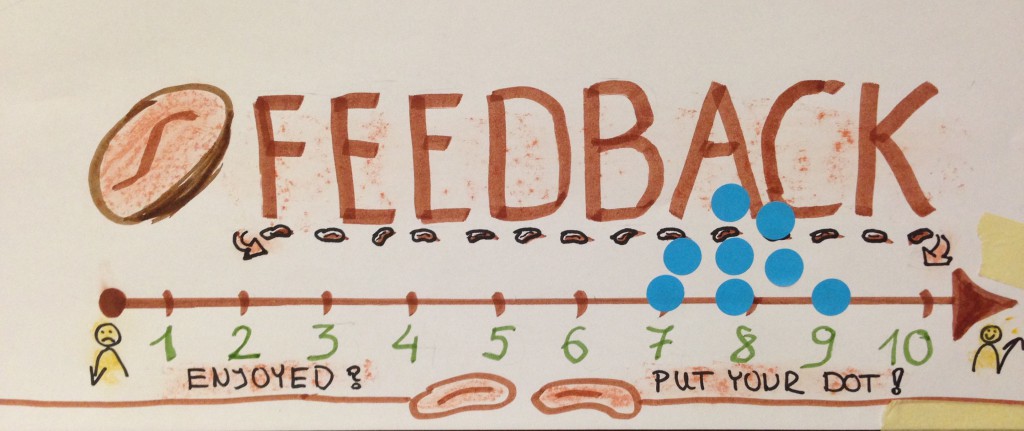 FEEDBACK
1 2 3 4 5 6 7 8 9 10
ENJOYED? PUT YOUR DOT!